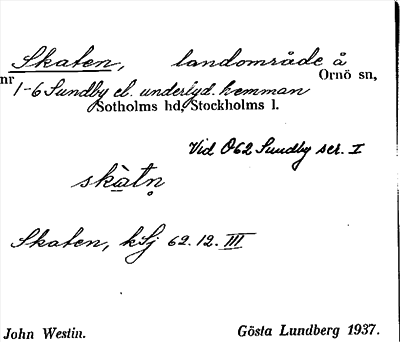 Skaten, landområde å
nr Ornö sn,
1-6 Sundby el. underlyd. hemman
Sotholms hd, Stockholms l.
Vid Ö62 Sundby scr. I
skàtn̥
Skaten, kSj 62.12. III
John Westin. Gösta Lundberg 1937.